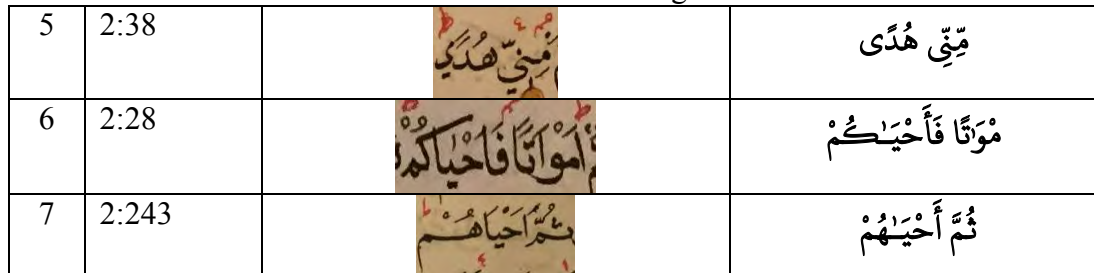 5 2:38 مِّنِّيّ هُدًي مِّنِّى هُدًى
6 2:28 اَمْوَاتًا فَاَحْيَاكُمْ مْوَٰتًا فَأَحْيَـٰكُمْ
7 2:243 ثُمَّ اَحْيَاهُمْ ثُمَّ أَحْيَـٰهُمْ